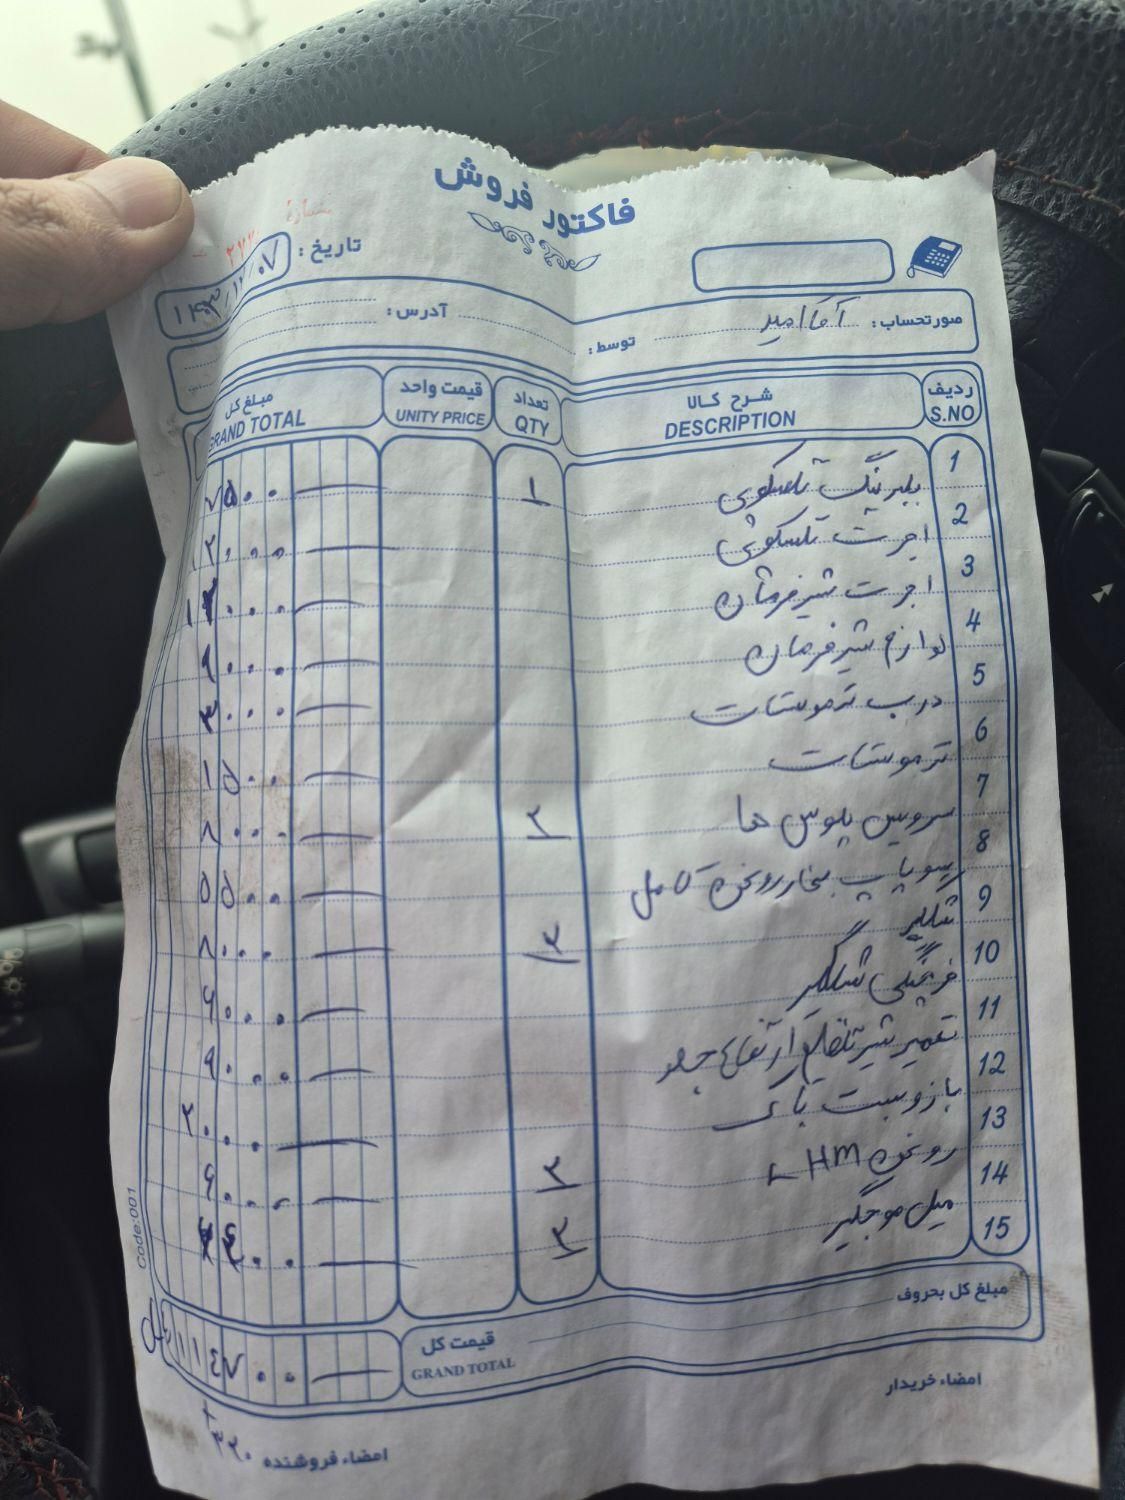 فاکتور فروش
شماره
تاریخ : ۱۴۰۳/۱۲/۰۷
صورتحساب : آقا امیر
توسط :
آدرس :
ردیف S.NO شرح کالا DESCRIPTION تعداد QTY قیمت واحد UNITY PRICE مبلغ کل GRAND TOTAL
1 بلبرینگ تلسکوپی ۱ ۷۵۰۰
2 اجرت تلسکوپی ۱۲۰۰۰
3 اجرت شیر فرمان
4 لوازم شیر فرمان ۹۰۰۰
5 درب ترموستات ۳۰۰۰
6 ترموستات ۱۵۰۰
7 سرویس پلوس ها ۲ ۸۰۰۰
8 سوپاپ بخار روغن کامل ۵۵۰۰
9 ۲ ۸۰۰۰
10 شلگیر ۶۰۰۰
11 تعمیر شیر ارتفاع جلو ۹۰۰۰
12 بازو ست باک ۲۰۰۰۰
13 روغن LHM ۲ ۶۰۰۰
14 میل موجگیر ۲
15
مبلغ کل بحروف
قیمت کل
GRAND TOTAL
امضاء خریدار
امضاء فروشنده
Code:001